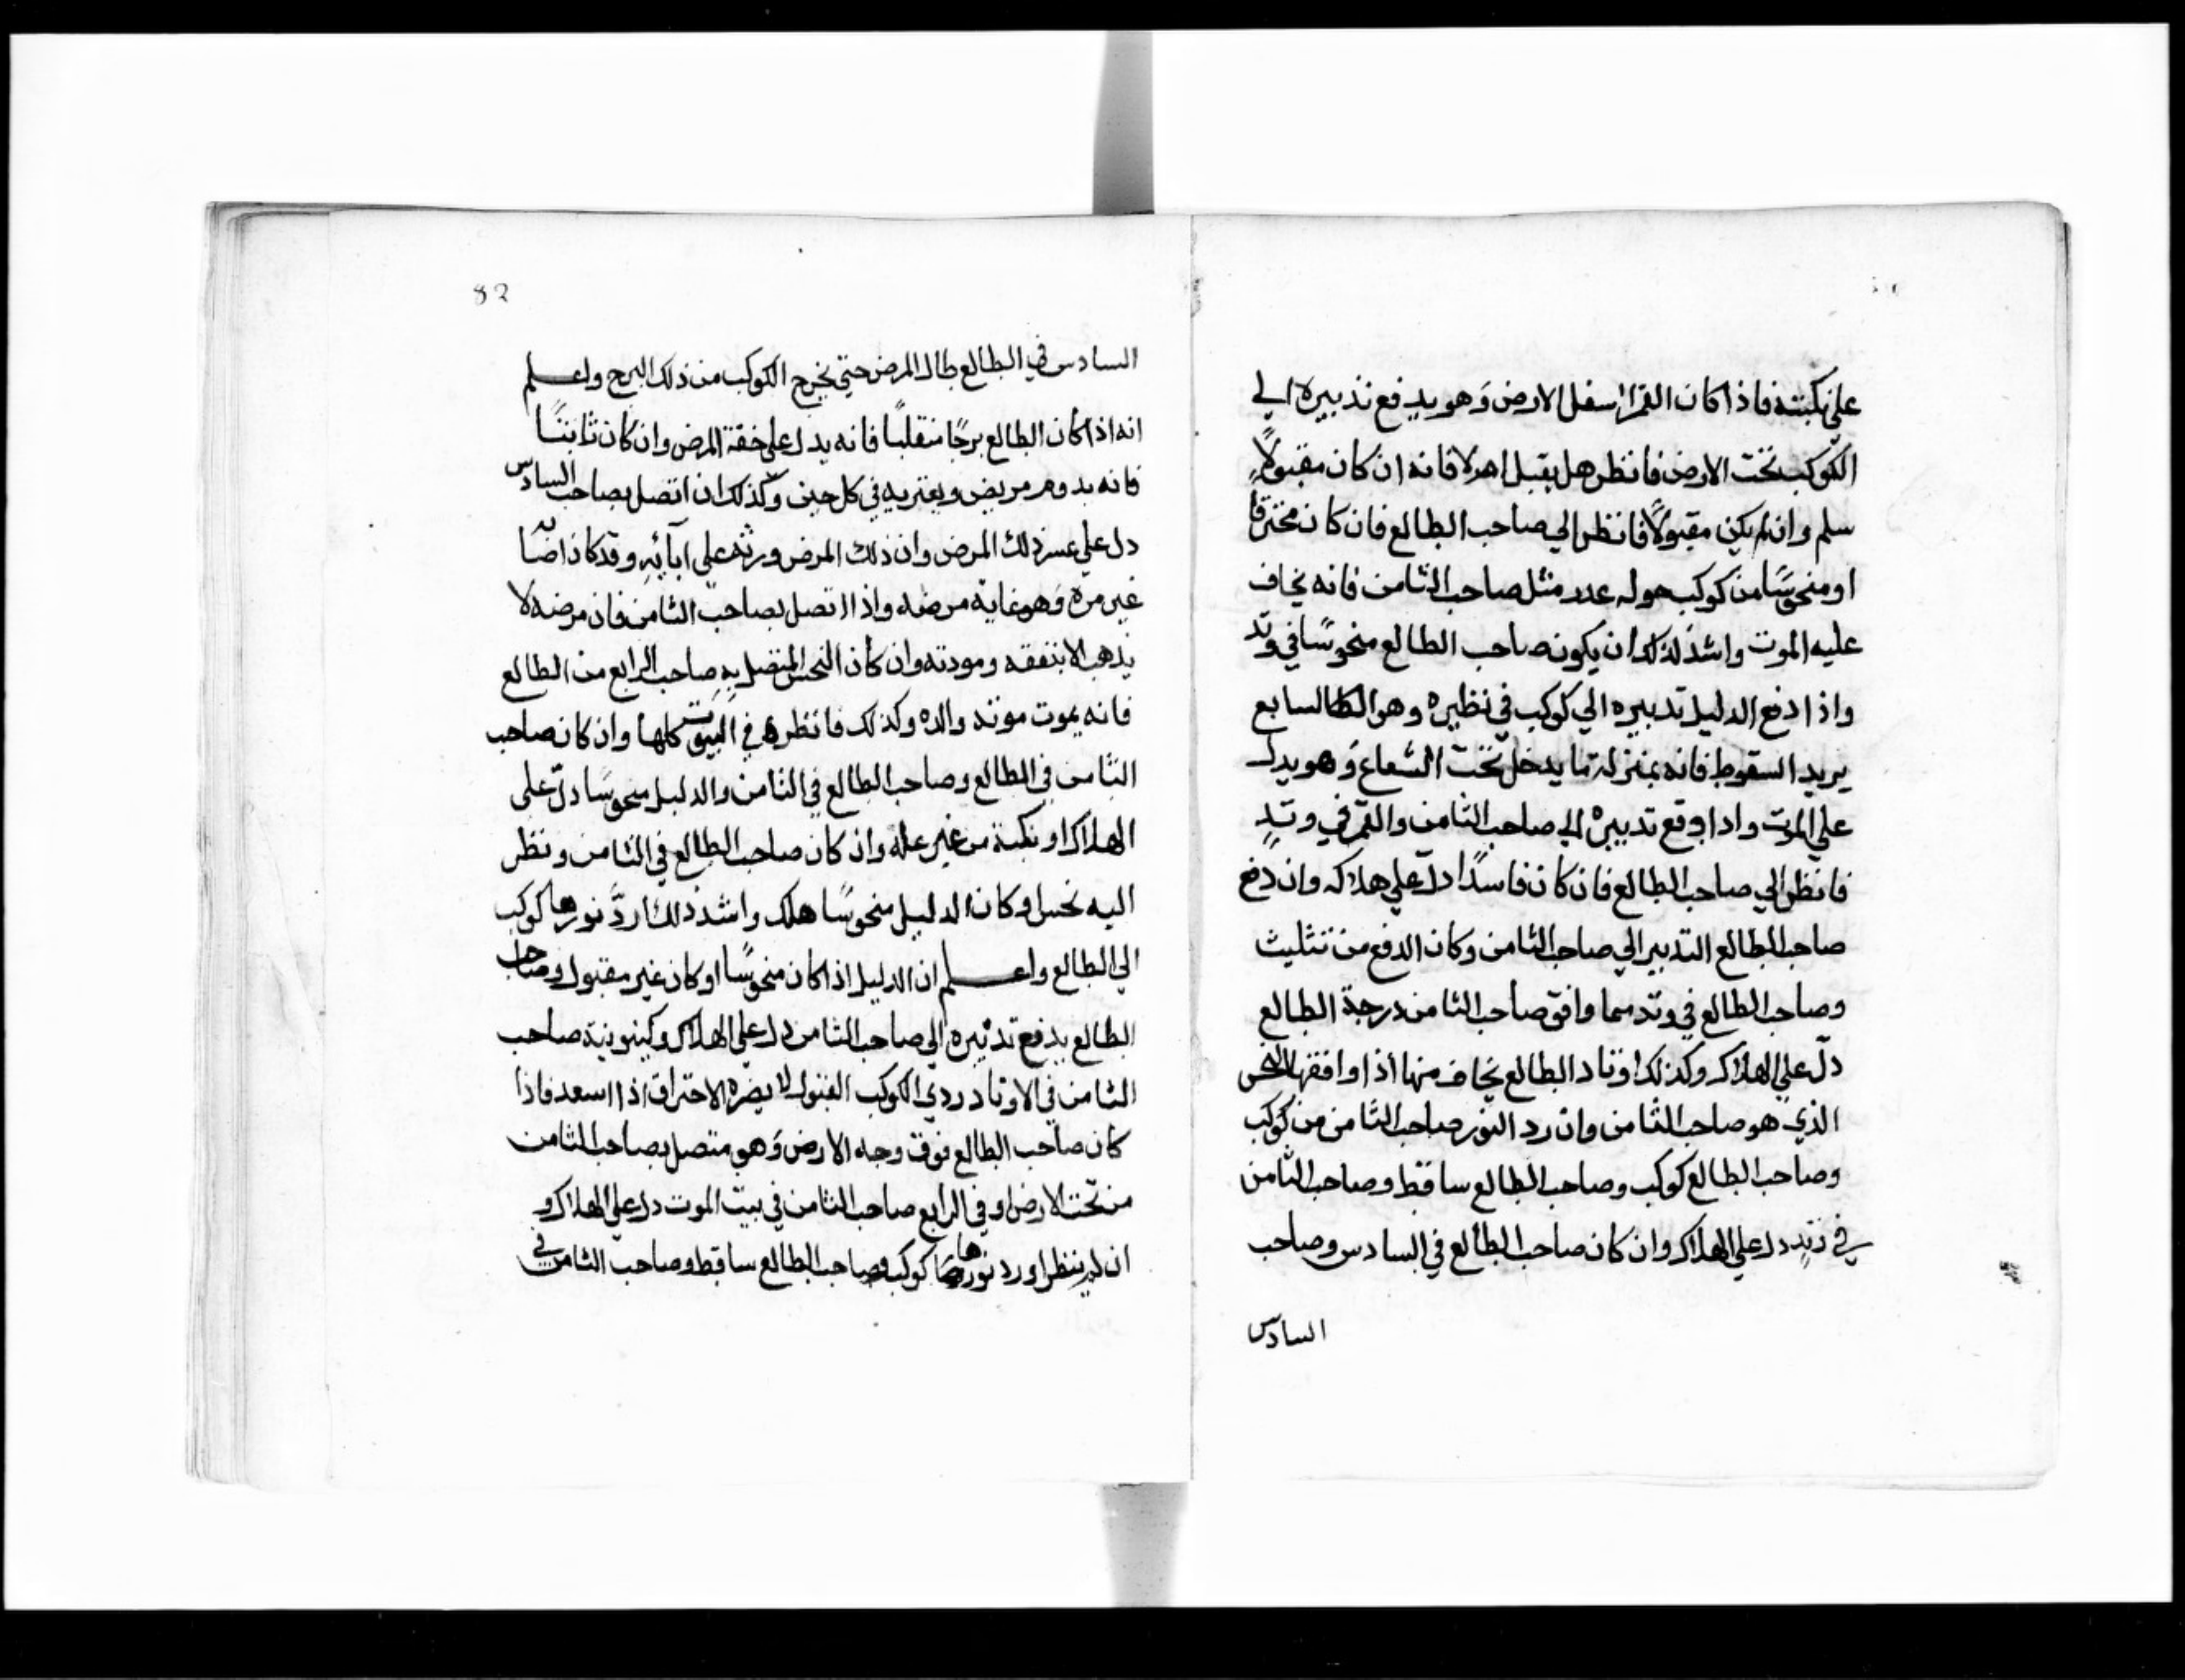 على نكبته فاذا كان القمر اسفل الارض وَهو يدفع تدبيره الي
الكوكب تحت الارض فانظر هل يقبل اهو لا فانه ان كان مقبولاً
سلم وان لم يكن مقبولاً فانظر الي صاحب الطالع فان كان محترقا
او منحوسًا من كوكب حوله عدد مثل صاحب الثامن فانه يخاف
عليه الموت واشد لذلك ان يكون صاحب الطالع منحوسًا في وتد
واذا دفع الدليل تدبيره الي كوكب في نظيره وهو السابع
يريد السقوط فانه بمنزلة ما يدخل تحت الشعاع وَهو يدل
علي الموت واذا وقع تدبيره الي صاحب الثامن والقمر في وتدٍ
فانظر الي صاحب الطالع فان كان فاسدًا دلّ علي هلاكه وان دفع
صاحب الطالع التدبير الي صاحب الثامن وكان الدفع من تثليث
وصاحب الطالع في وتد مما وافق صاحب الثامن درجة الطالع
دلّ علي الهلاك وكذلك اوتاد الطالع يخاف منها اذا وافقها النحس
الذي هو صاحب الثامن وان رد النور صاحب الثامن من كوكب
وصاحب الطالع كوكب وصاحب الطالع ساقط وصاحب الثامن
في وتدٍ دل علي الهلاك وان كان صاحب الطالع في السادس وصاحب
السادس
82
السادس في الطالع طال المرض حتي يخرج الكوكب من ذلك البرج واعلم
انه اذا كان الطالع برجًا منقلبًا فانه يدل علي خفة المرض وان كان ثابتًا
فانه يدوم مريض ويعتريه في كل حين وكذلك ان اتصل بصاحب السادس
دل علي عسر ذلك المرض وان ذلك المرض ورثه علي ابآئِهِ وقد كان
غير مرة وَهو غاية مرضه واذا اتصل بصاحب الثامن فان مرضه لا
يذهب الا بنفقه وموته وان كان النحس المتصل بِهِ صاحب الرابع من الطالع
فانه يموت موتة والده وكذلك فانظره في البيوت كلها وان كان صاحب
الثامن في الطالع وصاحب الطالع في الثامن والدليل منحوسًا دلّ على
الهلاك او نكبة من غير علة وان كان صاحب الطالع في الثامن ونظر
اليه نحس او كان الدليل منحوسًا هلك واشد ذلك ان ردَّ نورها كوكب
الي الطالع واعلم ان الدليل اذا كان منحوسًا او كان غير مقبول وصاحب
الطالع يدفع تدبيره الي صاحب الثامن دل علي الهلاك وكينونية صاحب
الثامن في الاوتاد ردي الكوكب القبول لا يضره الاحتراق اذا اسعد فاذا
كان صاحب الطالع فوق وجه الارض وَهو متصل بصاحب الثامن
من تحت الارض او في الرابع صاحب الثامن في بيت الموت دل علي الهلاك و
ان لم ينظر او رد نورها كوكب وصاحب الطالع ساقط وصاحب الثامن في